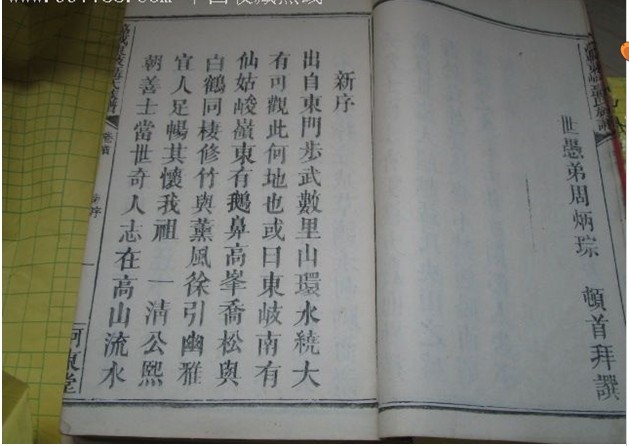 世愚弟周炳琮 頓首拜譔
新序
出自東門步武數里山環水繞大
有可觀此何地也或曰東岐南有
仙姑峻嶺東有鵝鼻高峯喬松與
白鶴同棲修竹與薰風徐引幽雅
宜人足暢其懷我祖
一清公熙
朝善士當世奇人志在高山流水
卷首
新序
河東堂